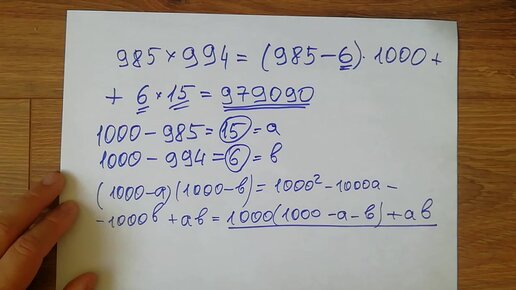 985 × 994 = (985 – 6) · 1000 +
+ 6 × 15 = 979090
1000 – 985 = 15 = a
1000 – 994 = 6 = в
(1000 – a)(1000 – в) = 1000² – 1000a –
– 1000в + aв = 1000(1000 – a – в) + aв